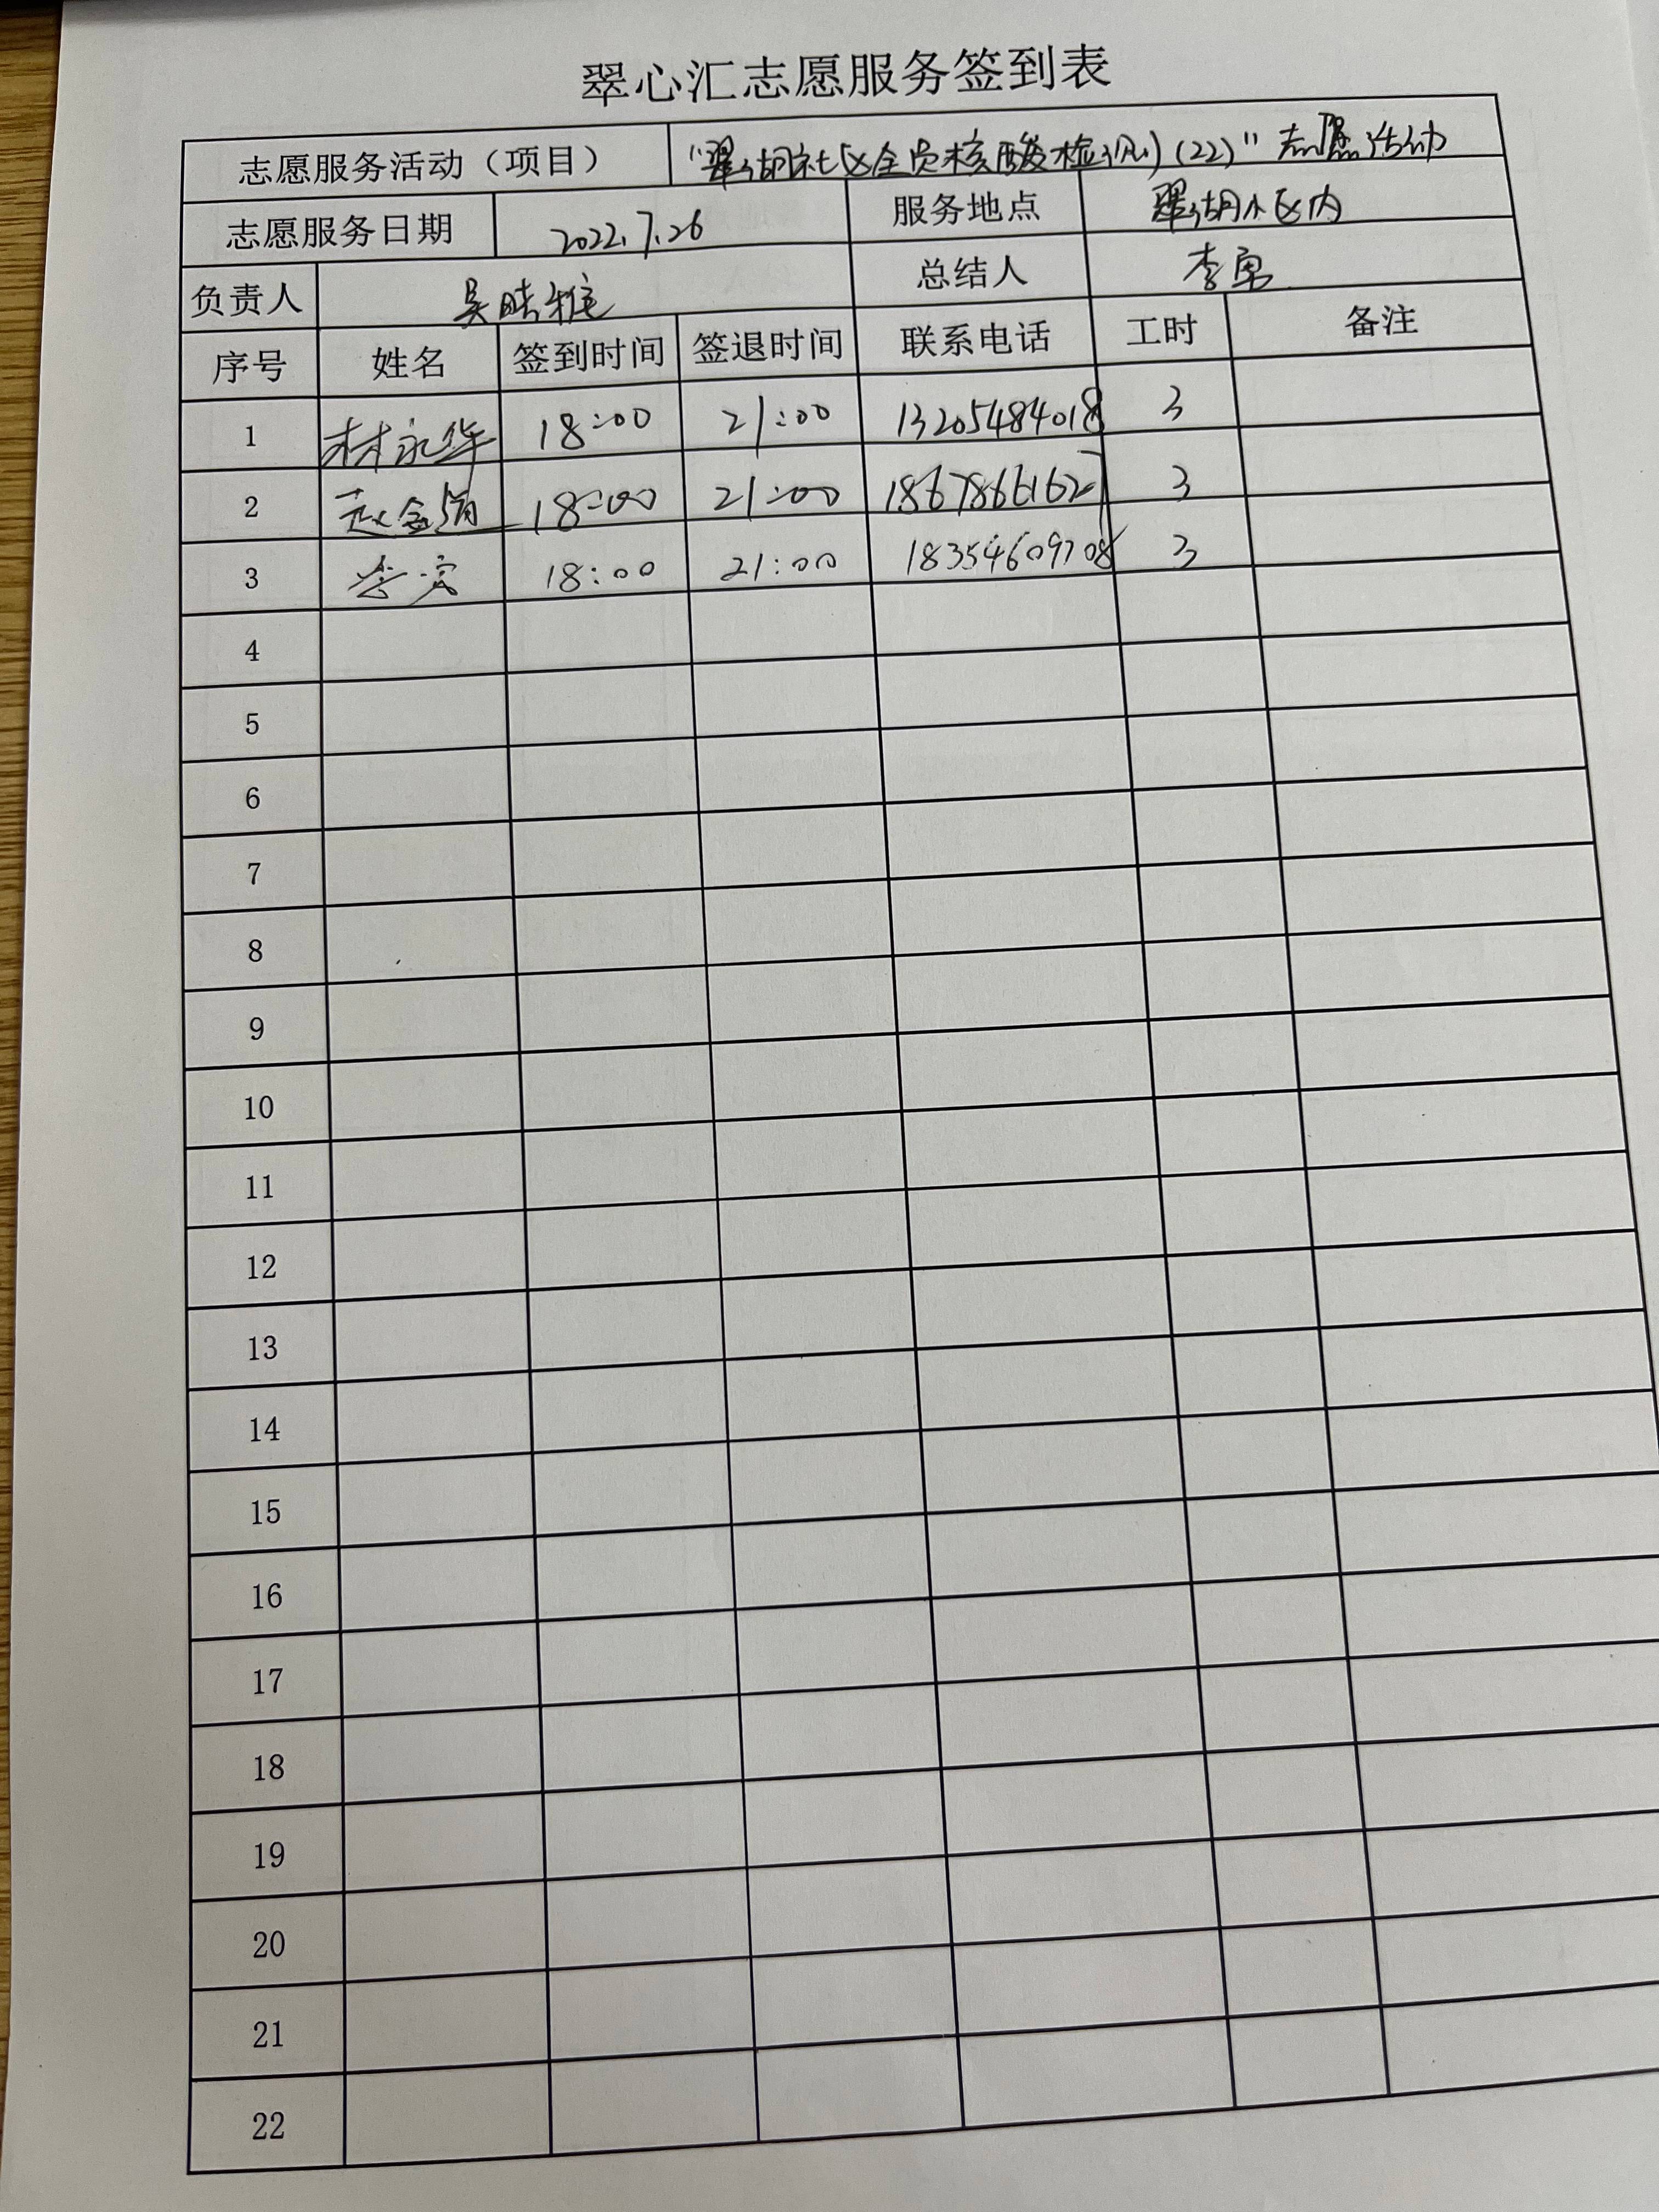 翠心汇志愿服务签到表
志愿服务活动（项目） "翠湖社区全员核酸检测(22)"志愿活动
志愿服务日期 2022.7.26 服务地点 翠湖小区内
负责人 吴晓雅 总结人 李勇
序号 姓名 签到时间 签退时间 联系电话 工时 备注
1 林永华 18:00 21:00 13205484018 3
2 18:00 21:00 18678661627 3
3 18:00 21:00 18354609708 3
4
5
6
7
8
9
10
11
12
13
14
15
16
17
18
19
20
21
22